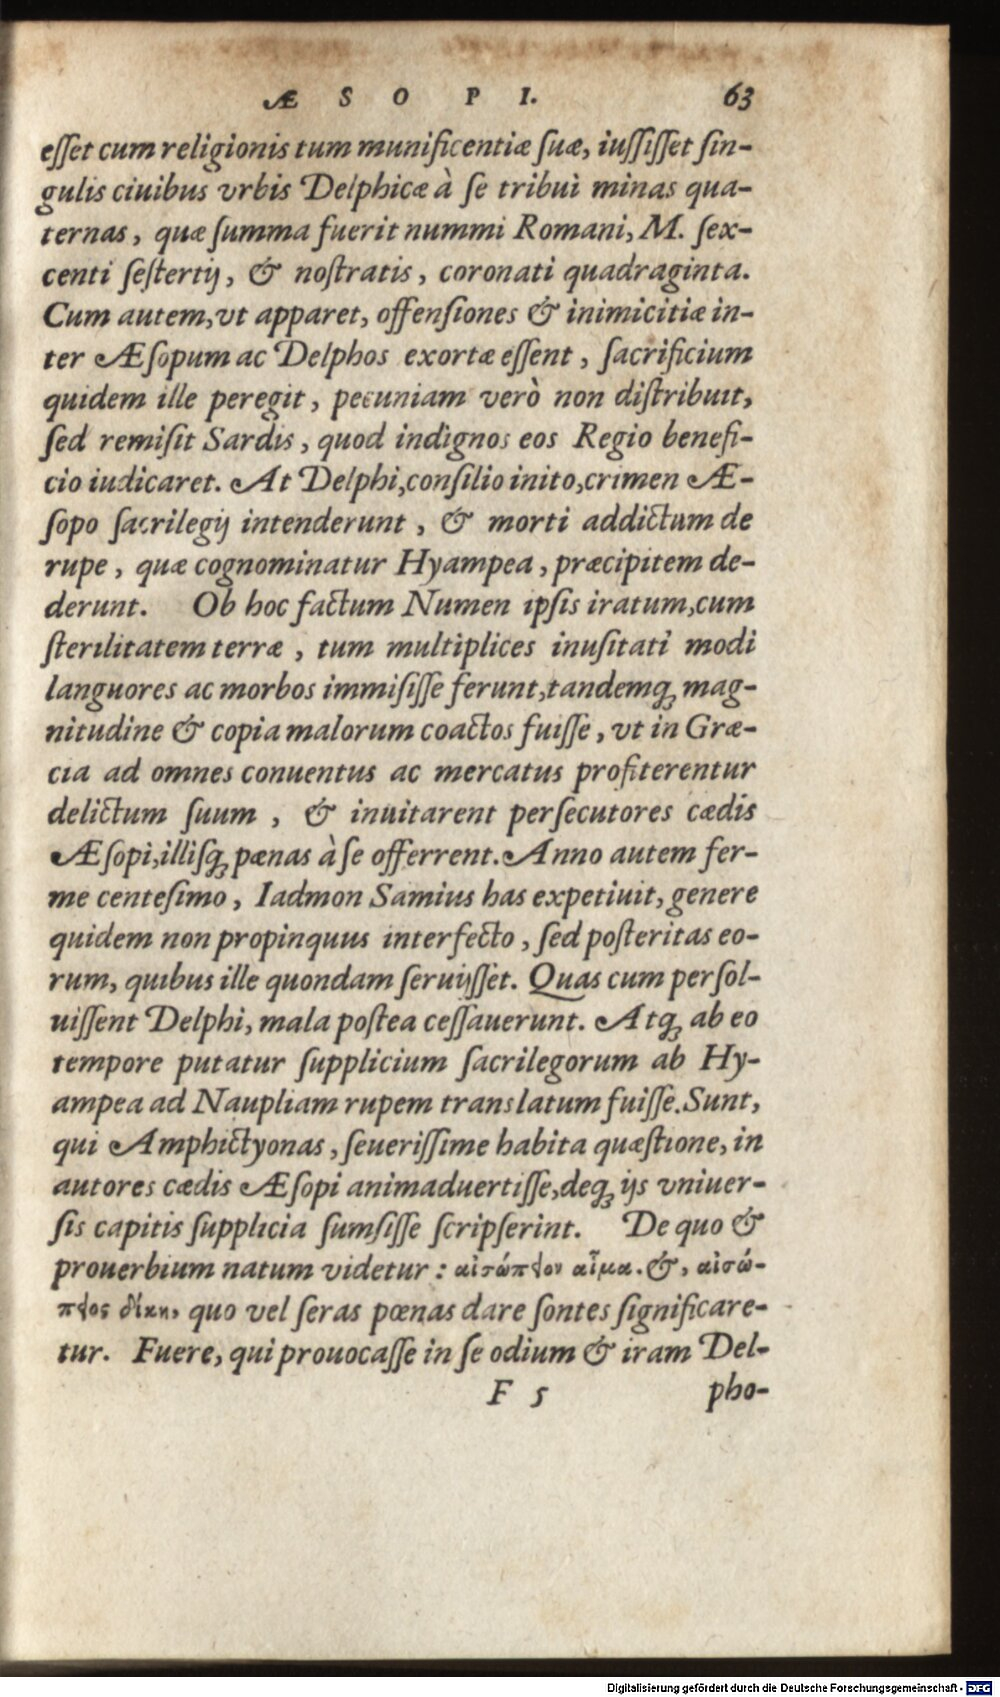 ÆSOPI. 63
eſſet cum religionis tum munificentiæ ſuæ, iuſſiſſet ſin-
gulis ciuibus vrbis Delphicæ à ſe tribui minas qua-
ternas, quæ ſumma fuerit nummi Romani, M. ſex-
centi ſeſtertij, & noſtratis, coronati quadraginta.
Cum autem, vt apparet, offenſiones & inimicitiæ in-
ter Æſopum ac Delphos exortæ eſſent, ſacrificium
quidem ille peregit, pecuniam verò non diſtribuit,
ſed remiſit Sardis, quod indignos eos Regio benefi-
cio iudicaret. At Delphi, conſilio inito, crimen Æ-
ſopo ſacrilegij intenderunt, & morti addictum de
rupe, quæ cognominatur Hyampea, præcipitem de-
derunt. Ob hoc factum Numen ipſis iratum, cum
ſterilitatem terræ, tum multiplices inuſitati modi
languores ac morbos immiſiſſe ferunt, tandemq́; mag-
nitudine & copia malorum coactos fuiſſe, vt in Græ-
cia ad omnes conuentus ac mercatus profiterentur
delictum ſuum, & inuitarent perſecutores cædis
Æſopi, illiſq́; pœnas à ſe offerrent. Anno autem fer-
me centeſimo, Iadmon Samius has expetiuit, genere
quidem non propinquus interfecto, ſed poſteritas eo-
rum, quibus ille quondam ſeruijſſet. Quas cum perſol-
uiſſent Delphi, mala poſtea ceſſauerunt. Atq́; ab eo
tempore putatur ſupplicium ſacrilegorum ab Hy-
ampea ad Naupliam rupem translatum fuiſſe. Sunt,
qui Amphictyonas, ſeueriſſime habita quæſtione, in
autores cædis Æſopi animaduertiſſe, deq́; ijs vniuer-
ſis capitis ſupplicia ſumſiſſe ſcripſerint. De quo &
prouerbium natum videtur: αἰσώπειον αἷμα. &, αἰσώ-
πειος δίκη, quo vel ſeras pœnas dare ſontes ſignificare-
tur. Fuere, qui prouocaſſe in ſe odium & iram Del-
F 5 pho-
Digitalisierung gefördert durch die Deutsche Forschungsgemeinschaft - DFG